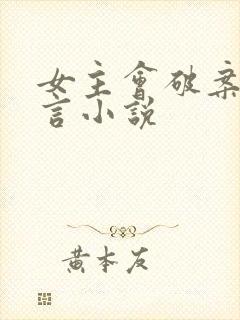 女主會破案
言小說
黃本友